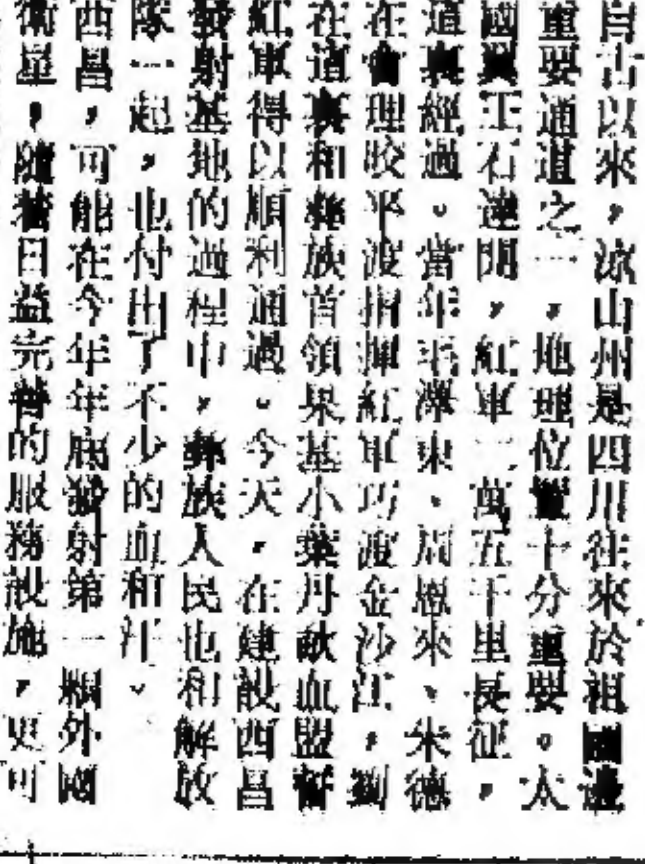 自古以來，涼山州是四川往來於祖國邊
重要通道之一，地理位置十分重要。太
國翼王石達開，紅軍二萬五千里長征，
這裏經過。當年毛澤東、周恩來、朱德
在會理皎平渡指揮紅軍巧渡金沙江，劉
在這裏和彝族首領果基小葉丹歃血盟誓
紅軍得以順利通過。今天，在建設西昌
發射基地的過程中，彝族人民也和解放
隊一起，也付出了不少的血和汗。
西昌，可能在今年年底發射第一顆外國
衛星，隨着日益完善的服務設施，更可